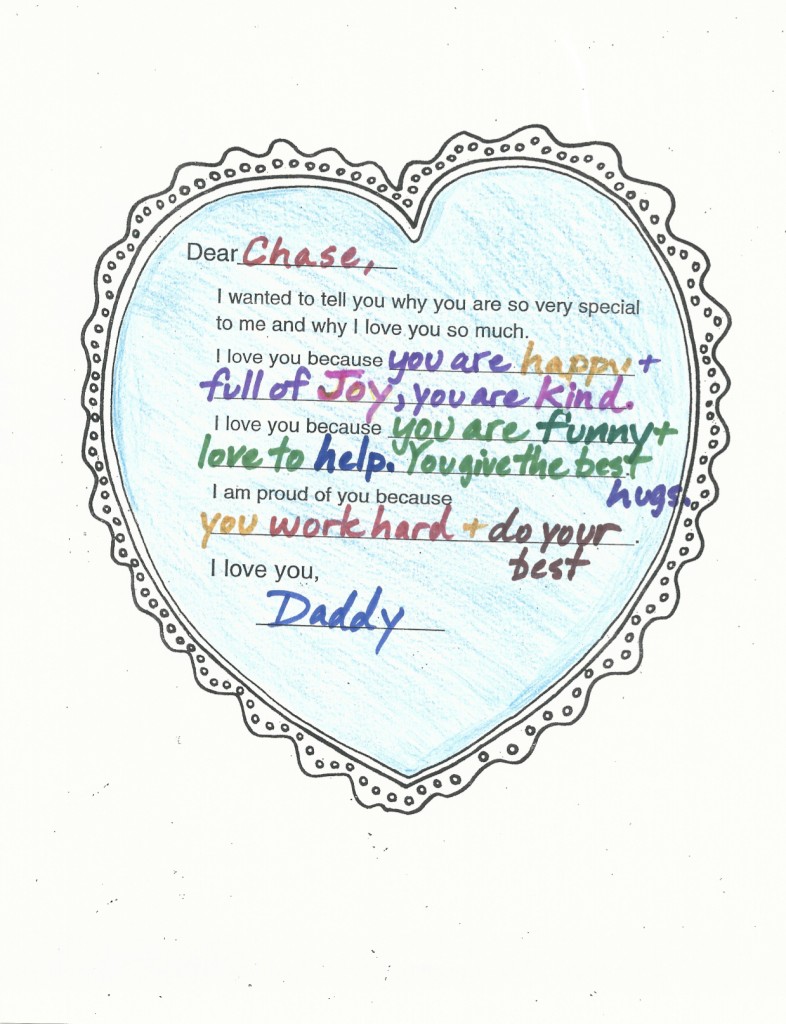 Dear Chase,
I wanted to tell you why you are so very special
to me and why I love you so much.
I love you because you are happy +
full of Joy, you are kind.
I love you because you are funny +
love to help. You give the best
hugs.
I am proud of you because
you work hard + do your .
best
I love you,
Daddy